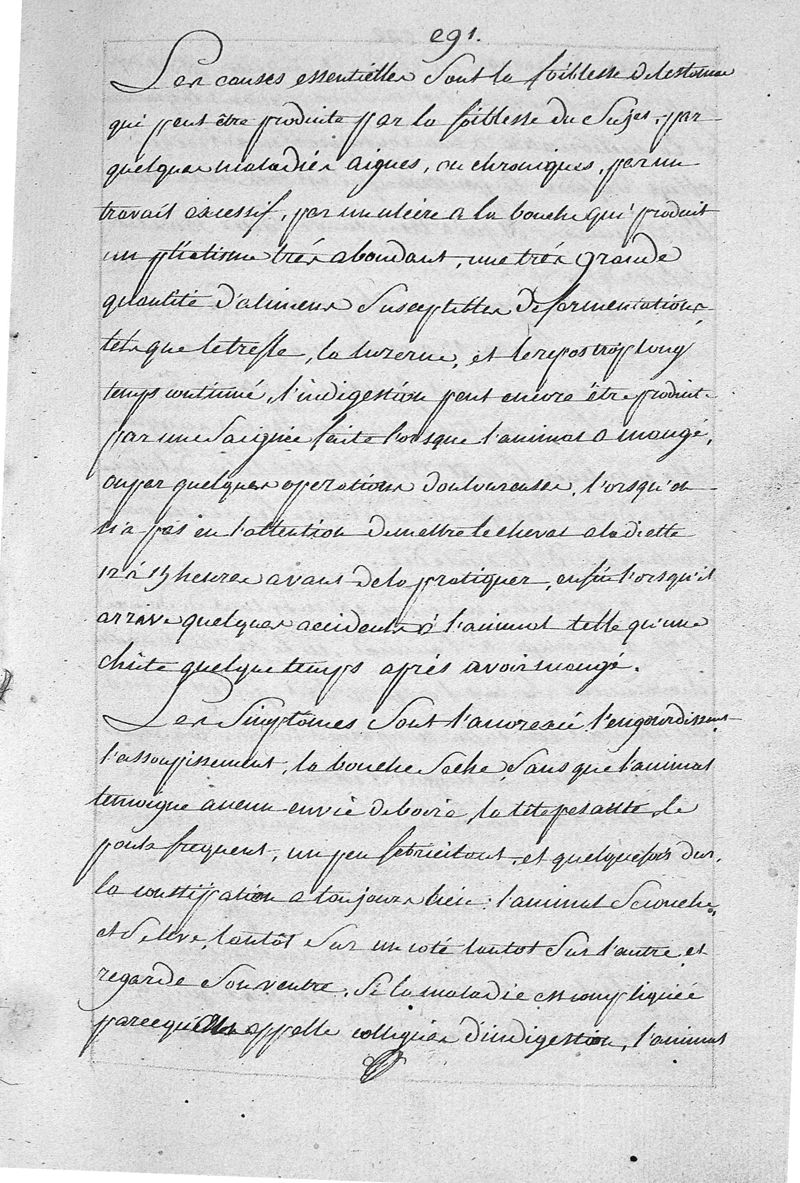 291.
Les causes essentielles sont la foiblesse de lestomac
qui peut être produite par la foiblesse du Sujet, par
quelques maladies aigues, ou chroniques, par un
travail excessif, par un ulcère a la bouche qui produit
un ptialisme très abondant, une très grande
quantité d'alimens Susceptibles de fermentations,
tels que le trefle, la luzerne, et le repos trop long
temps continué, l'indigestion peut encore être produite
par une Saignée faite lorsque l'animal a mangé,
ou par quelques operations douloureuses, l'orsqu'on
n'a pas eu l'attention de mettre le cheval a la diette
12 à 15 heures avant de la pratiquer, enfin l'orsqu'il
arrive quelques accidents à l'animal telle qu'une
chûte quelque temps après avoir mangé.
Les Simptômes sont l'anorexié l'engourdissement
l'assoupissement, la bouche Seche, Sans que l'animal
temoigne aucun envie de boire, la tête pesante, le
pouls frequent, un peu febricitant, et quelquefois dur,
la constipation a toujours lieu : l'animal Se couche,
et Se leve, tantôt Sur un coté tantot Sur l'autre, et
regarde Son ventre. Si la maladie est compliquée
par ce qu' appelle colliques d'indigestion, l'animal